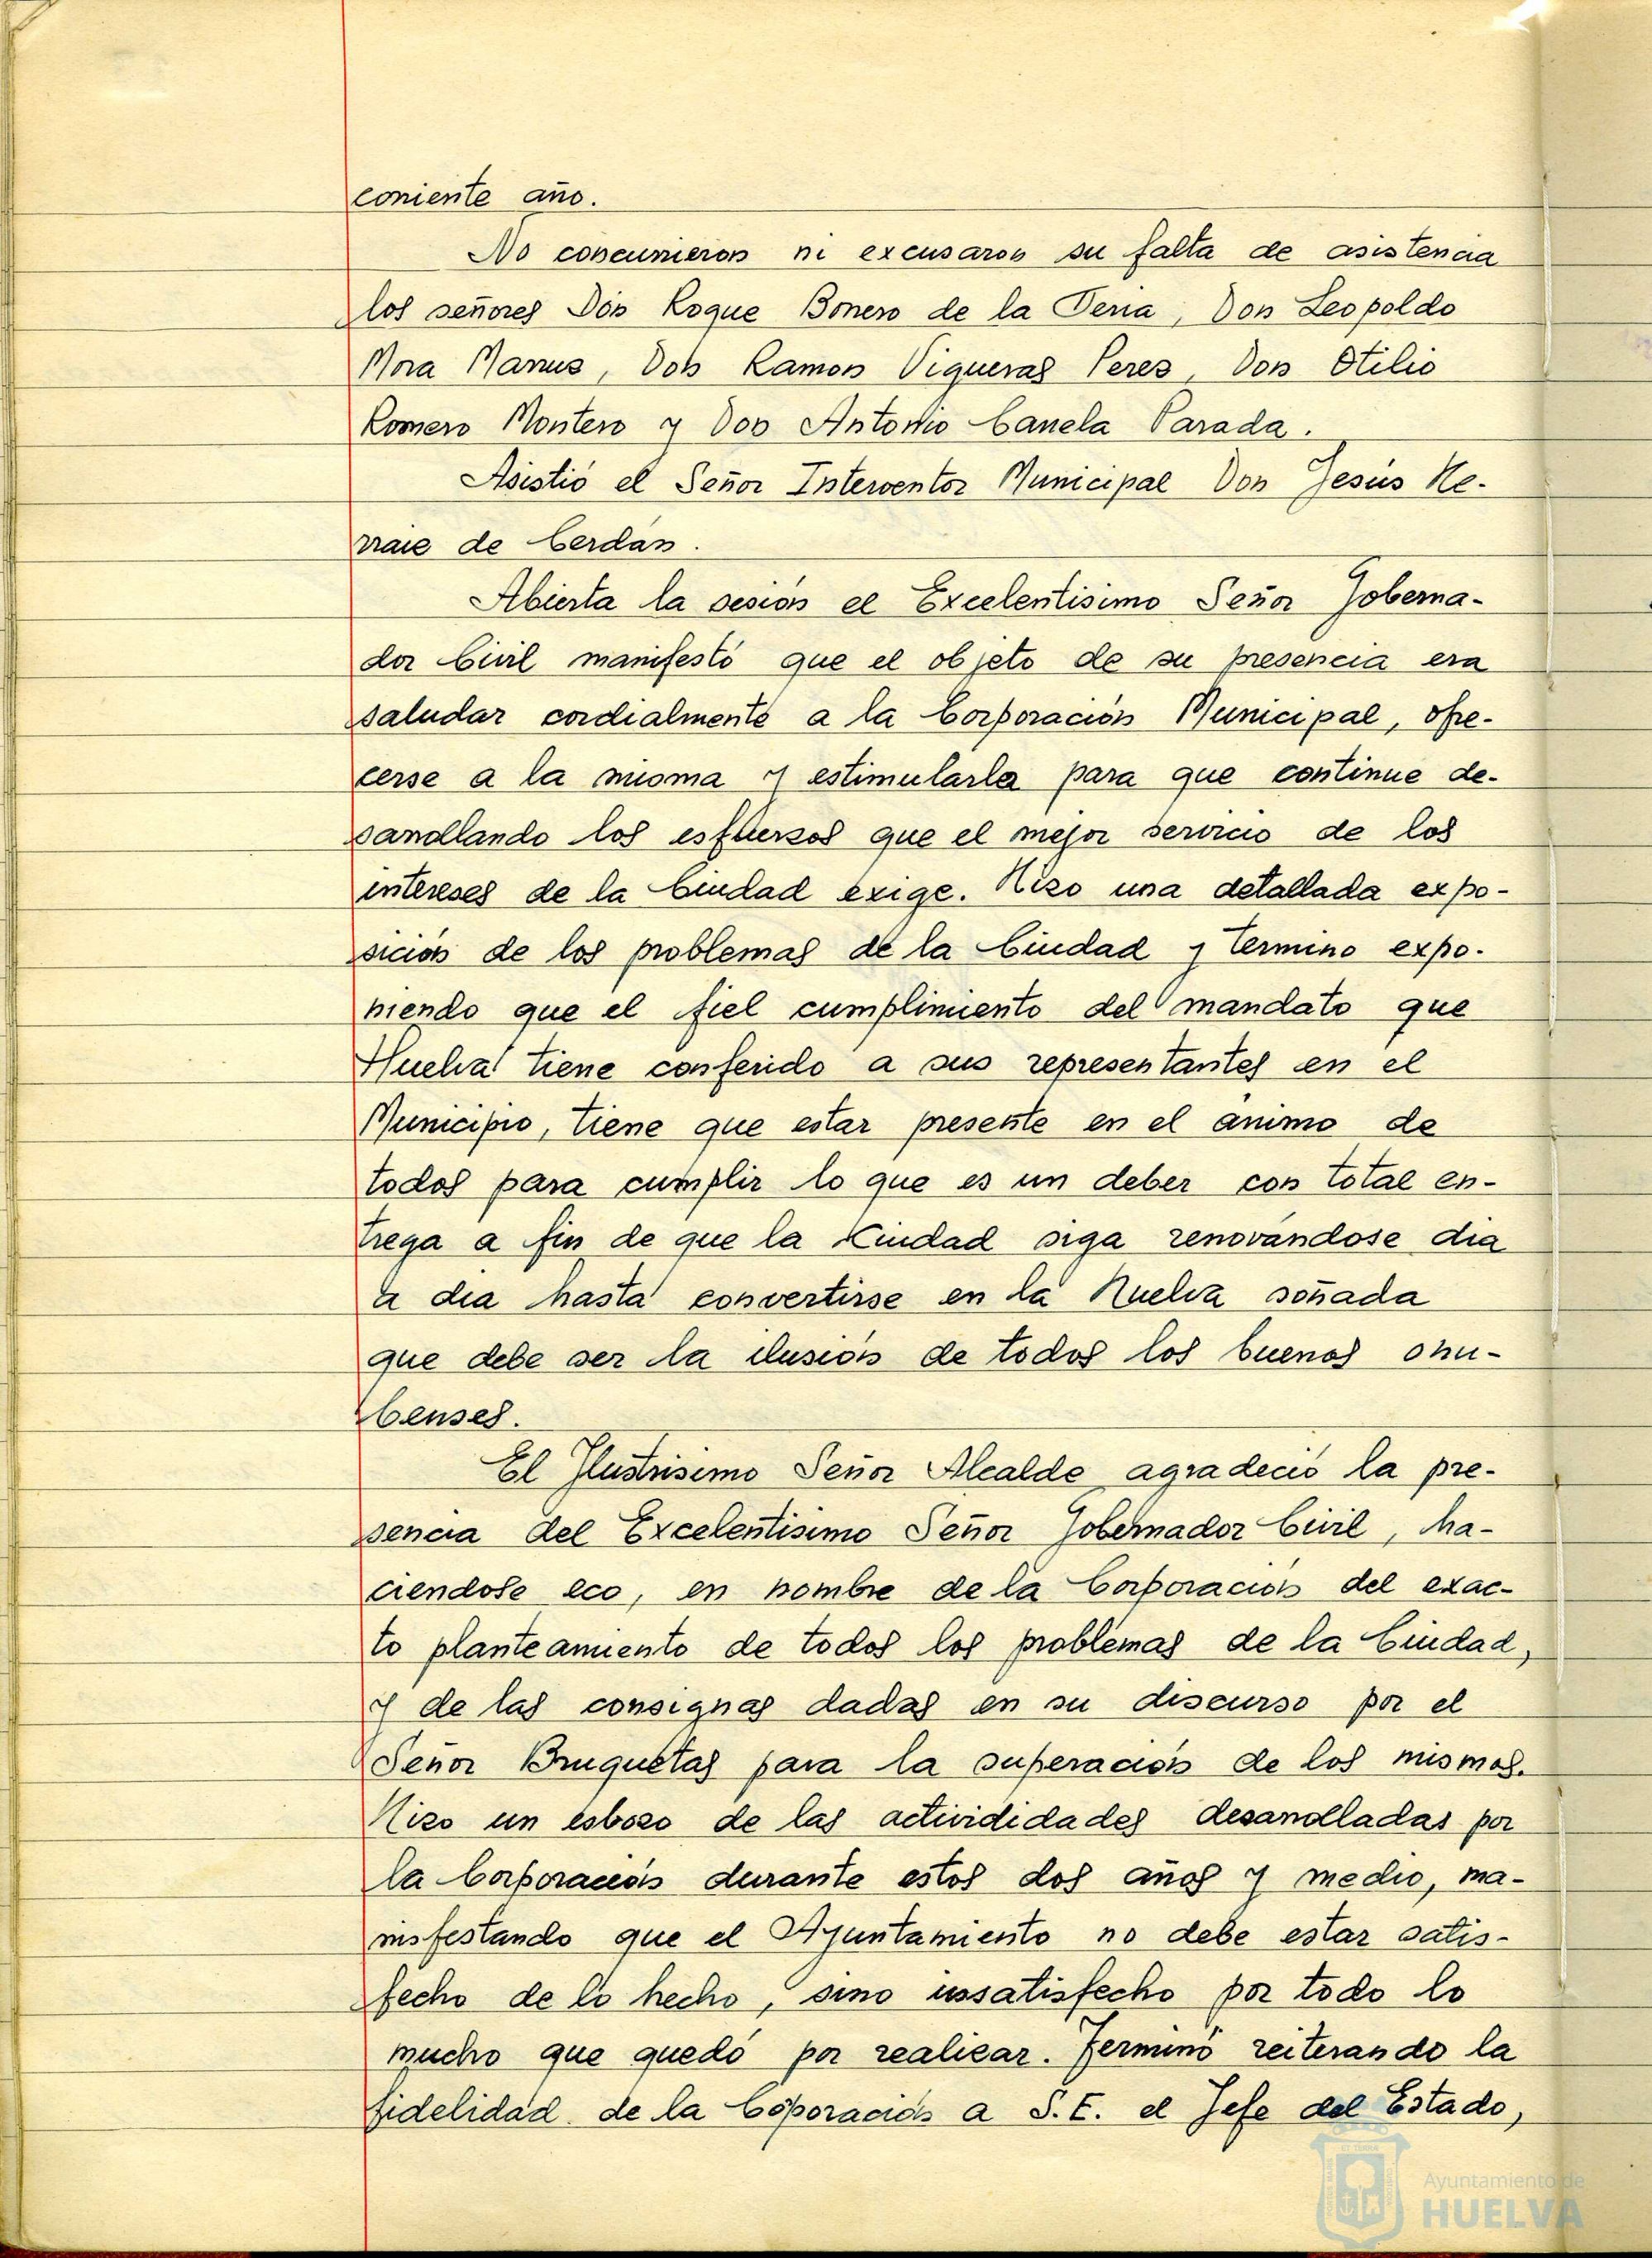 corriente año.
No concurrieron ni excusaron su falta de asistencia
los señores Don Roque Borrero de la Feria, Don Leopoldo
Mora Marrus, Don Ramon Vigueras Peres, Don Otilio
Romero Montero y Don Antonio Canela Parada.
Asistió el Señor Interventor Municipal Don Jesús He-
rraie de Cerdán.
Abierta la sesión el Excelentisimo Señor Goberna-
dor Civil manifestó que el objeto de su presencia era
saludar cordialmente a la Corporación Municipal, ofre-
cerse a la misma y estimularla para que continue de-
sarrollando los esfuersos que el mejor servicio de los
intereses de la Ciudad exige. Hizo una detallada expo-
sición de los problemas de la Ciudad y termino expo-
niendo que el fiel cumplimiento del mandato que
Huelva tiene conferido a sus representantes en el
Municipio, tiene que estar presente en el animo de
todos para cumplir lo que es un deber con total en-
trega a fin de que la Ciudad siga renovándose dia
a dia hasta convertirse en la Huelva soñada
que debe ser la ilusión de todos los buenos onu-
benses.
El Ilustrisimo Señor Alcalde agradeció la pre-
sencia del Excelentisimo Señor Gobernador Civil, ha-
ciendose eco, en nombre de la Corporación del exac-
to planteamiento de todos los problemas de la Ciudad,
y de las consignas dadas en su discurso por el
Señor Bruquetas para la superación de los mismos.
Hizo un esbozo de las activididades desarrolladas por
la Corporación durante estos dos años y medio, ma-
nisfestando que el Ayuntamiento no debe estar satis-
fecho de lo hecho, sino insatisfecho por todo lo
mucho que quedó por realizar. Terminó reiterando la
fidelidad de la Coporación a S.E. el Jefe del Estado,
Ayuntamiento de
HUELVA